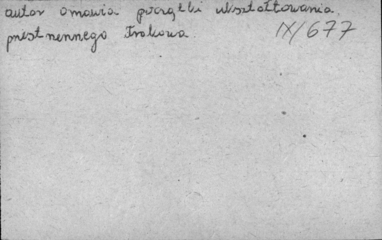 autor omawia początki ukształtowania
przestrzennego Krakowa IX/677